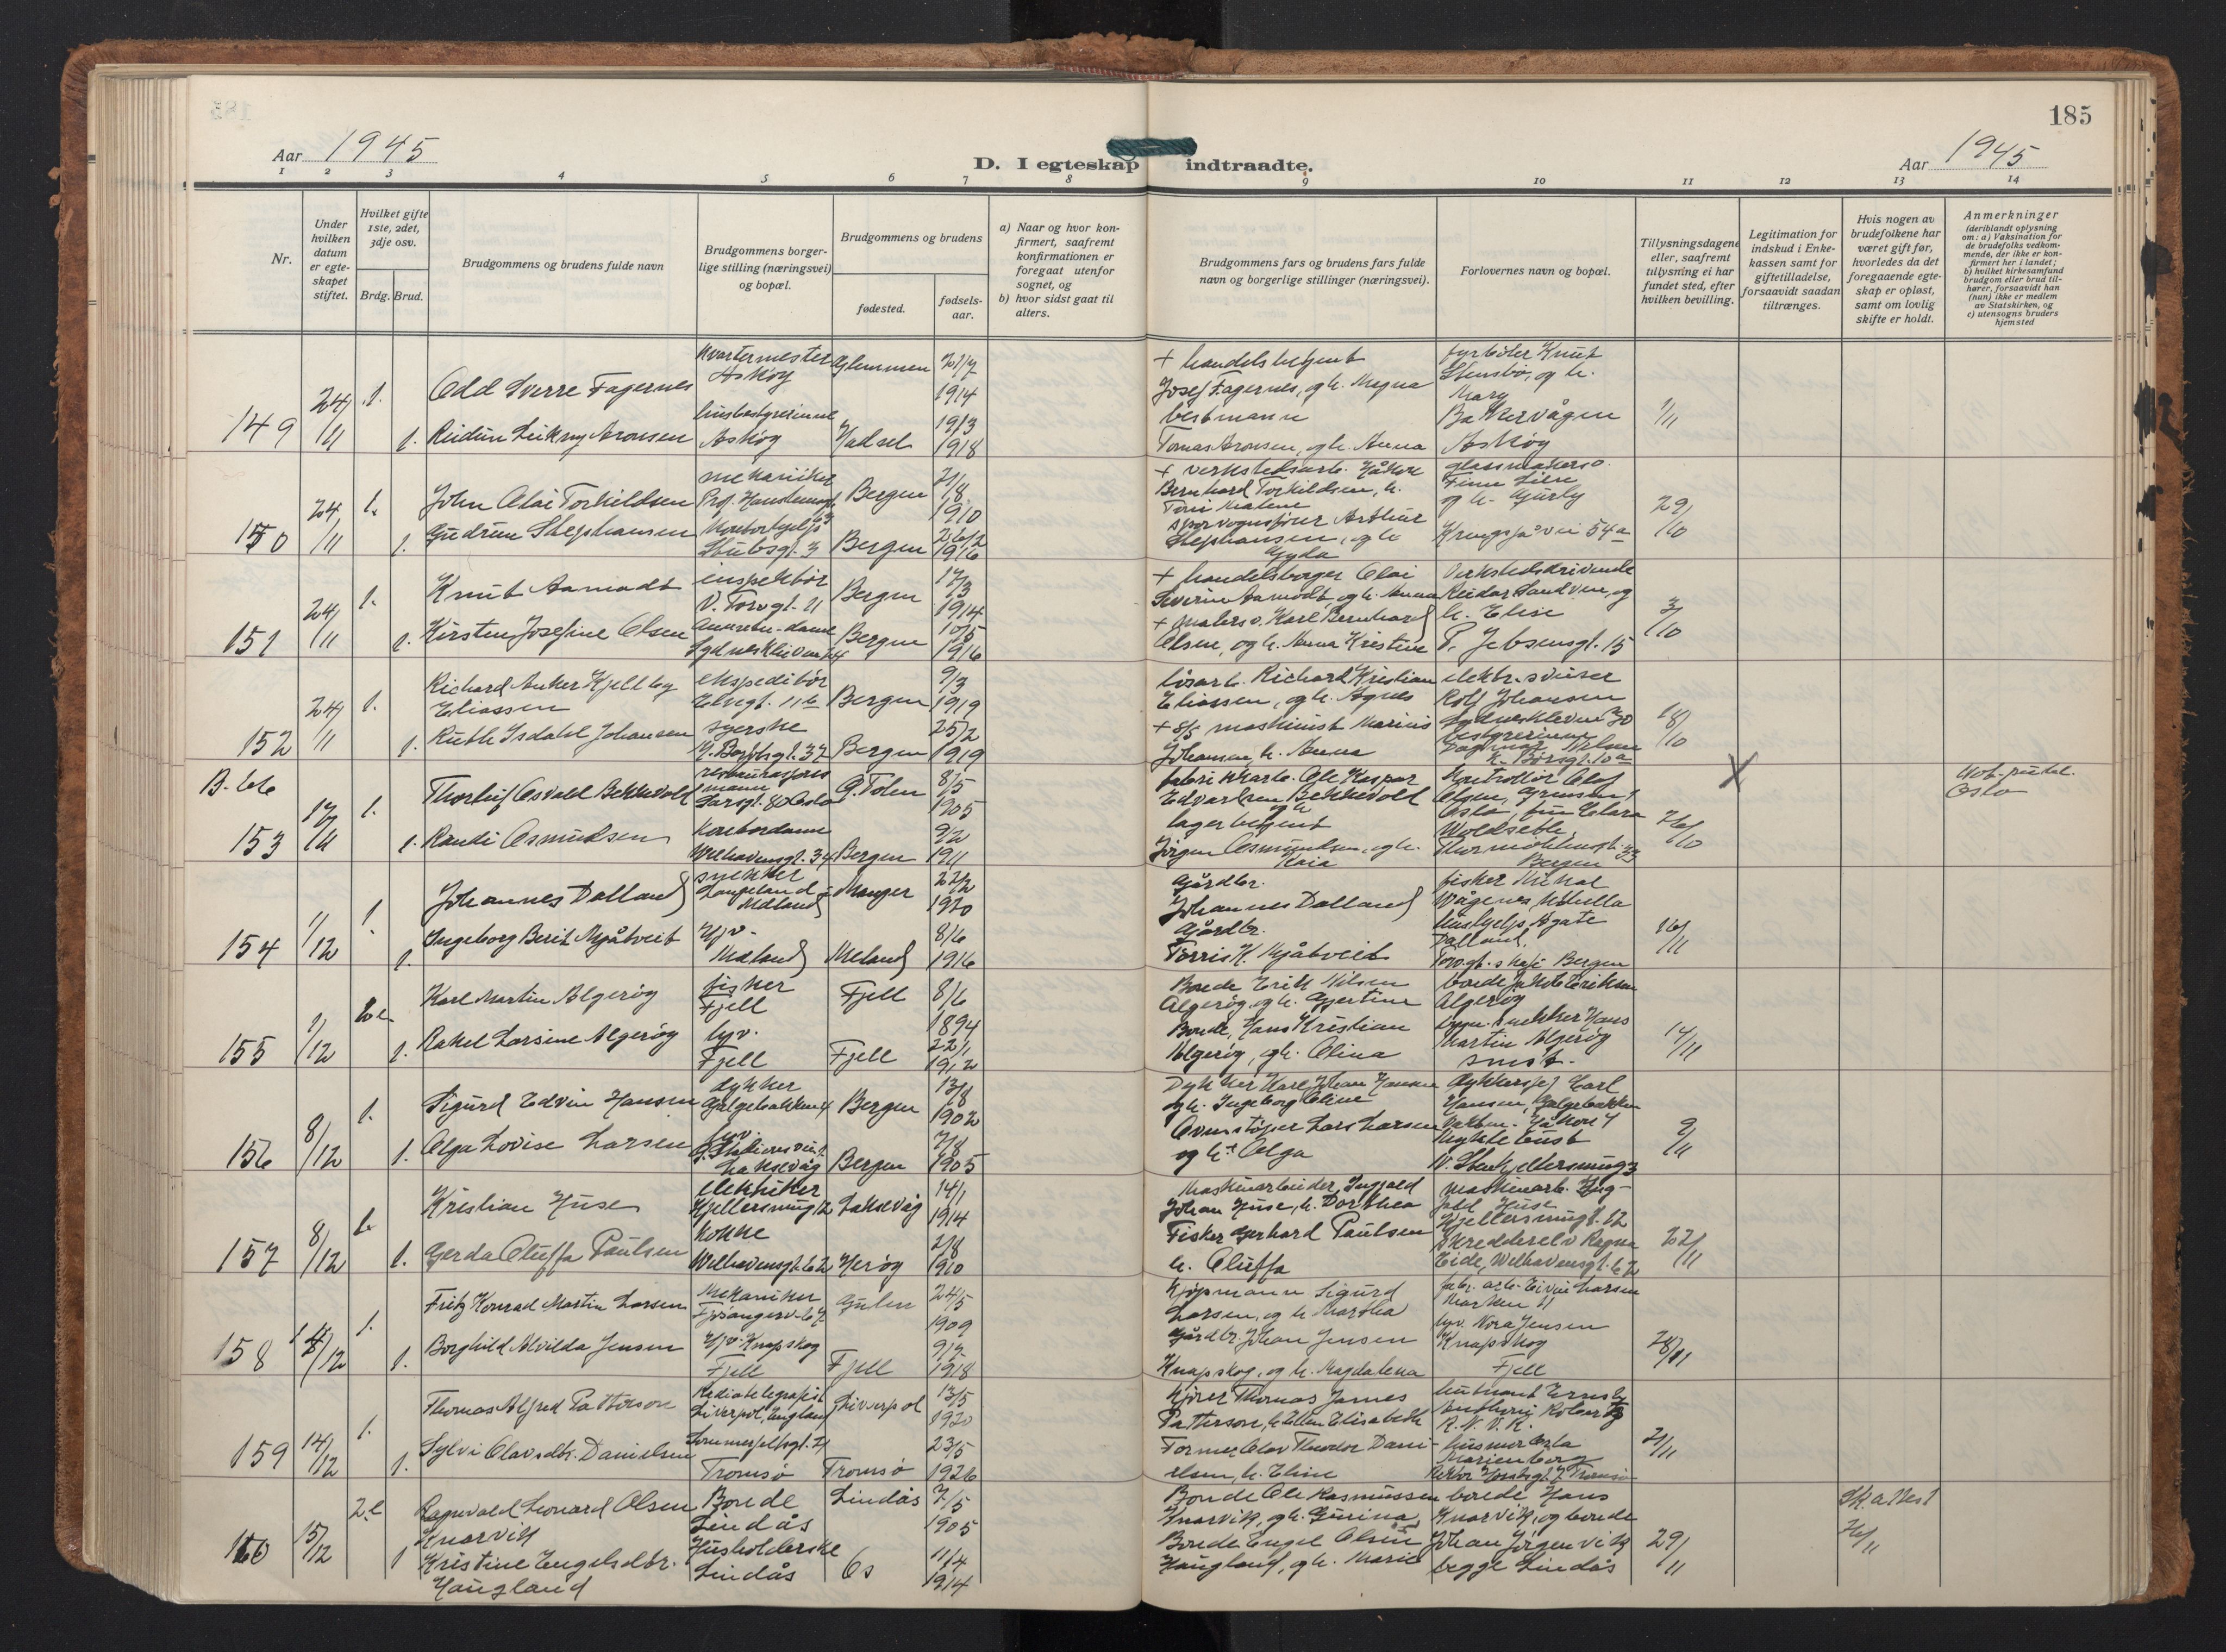 185
Aar 1945
D. I egteskap indtraadte.
Aar 1945
1 2 3 4 5 6 7 8 9 10 11 12 13 14
Nr.
Under hvilken datum er egteskapet stiftet.
Hvilket gifte 1ste, 2det, 3dje osv.
Brdg. Brud.
Brudgommens og brudens fulde navn
Brudgommens borgerlige stilling (næringsvei) og bopæl.
Brudgommens og brudens
fødested.
fødselsaar.
a) Naar og hvor konfirmert, saafremt konfirmationen er foregaat utenfor sognet, og
b) hvor sidst gaat til alters.
Brudgommens fars og brudens fars fulde navn og borgerlige stillinger (næringsvei).
Forlovernes navn og bopæl.
Tillysningsdagene eller, saafremt tillysning ei har fundet sted, efter hvilken bevilling.
Legitimation for indskud i Enkekassen samt for giftetilladelse, forsaavidt saadan tiltrænges.
Hvis nogen av brudefolkene har været gift før, hvorledes da det foregaaende egteskap er opløst, samt om lovlig skifte er holdt.
Anmerkninger
(deriblandt oplysning om: a) Vaksination for de brudefolks vedkommende, der ikke er konfirmert her i landet;
b) hvilket kirkesamfund brudgom eller brud tilhører, forsaavidt han (hun) ikke er medlem av Statskirken, og
c) utensogns bruders hjemsted
149 24/11 1. Odd Sverre Fagernes kvartermester Askøy Glemmen 21/7 1914
+ handelsbetjent Josef Fagernes, og h. Magna
fyrbøter Knut Stensbø, og h. Mary
1. Reidun Leikny Aronsen husbestyrerinne Askøy Hadsel 1913 1918
bestmann Tomas Aronsen, og h. Anna
Bakkervågen Askøy 1/11
150 24/11 1. John Olai Torkildsen mekaniker Bergen 21/8 1910
+ verkstedsarb. Håkon Bernhard Torkildsen, h. Toni Malene
glassmakers. Finn Lien og h. Gurly
1. Gudrun Stephansen Stubsgt. 3 Bergen 26/2 1916
sporvognsfører Arthur Stephansen, og h. Gyda
Kringsjåvei 54a 29/10
151 24/11 1. Knut Aamodt inspektør V. Torvgt. 11 Bergen 17/3 1914
+ handelsborger Olai Severin Aamodt, og h. Anna
Verkstedsdrivende Reidar Sandven, og h. Elise
1. Kirsten Josefine Olsen Sydneskleiven 24 Bergen 10/5 1916
+ malers v. Karl Bernhard Olsen, og h. Anna Kristine
P. Jebsensgt. 15 3/10
152 24/11 1. Richard Anker Kjelby Eliassen ekspeditør Elvegt. 11b Bergen 9/3 1919
løsarb. Richard Kristian Eliassen, og h. Agnes
elektr.sveiser Rolf Johansen Sydneskleven 30
1. Ruth Isdahl Johansen syerske Bergen 25/2 1919
+ s/s maskinist Marius Johansen, h. Anna
bestyrerinne Dagmar Nilsen 18/10
B. 66
153 17/11 1. Thorleif Osvald Bekkevold Oslo 8/5 1905
fabrikkarb. Ole Kaspar Edvardsen Bekkevold og h.
kontrollør Olaf Olsen, Grensen 1 Oslo, frue Clara Woldseth
Oslo
X
1. Randi Osmundsen kontordame Welhavensgt. 34 Bergen 9/2 1911
lagerbetjent Jørgen Osmundsen, og h. Kaia
Thormøhlensgt. 33 Bergen 26/10
154 1/12 1. Johannes Dalland snekker Langeland Mæland Manger 22/2 1920
Gårdbr. Johannes Dalland
fisker Mikal Vågenes
1. Ingeborg Berit Mjåtveit hjv. Mæland Meland 8/6 1916
Gårdbr. Torris K. Mjåtveit
hushjelp Agate Dalland, Bergen 16/11
155 1/12 2e Karl Martin Algerøy fisker Fjell Fjell 8/6 1894
Bonde Erik Nilsen Algerøy, og h. Gjertine
bonde Jakob Eriksen Algerøy
1. Rakel Larsine Algerøy hjv. Fjell Fjell 22/1 1912
Bonde, Hans Kristian Algerøy, og h. Olina
snekker Hans Martin Algerøy smst. 14/11
156 8/12 1. Sigurd Edvin Hansen dykker Galgebakken 4 Bergen 13/8 1902
Dykker Karl Johan Hansen og h. Ingeborg Oline
dykkersjef Karl Hansen, Galgebakken
1. Olga Lovise Larsen hjv. Laksevåg Bergen 7/8 1905
Ovnstøper Lars Larsen og h. + Olga
Håkon Myklebust 9/11
157 8/12 1. Kristian Huse tekniker Kjellersmug 12 Laksevåg 14/1 1914
Maskinarbeider, Ingvald Johan Huse, h. Dorthea
maskinarb. Ingvald Huse Kjellersmug 12
1. Gerda Oluffa Paulsen kokke Welhavensgt. 62 Herøy 2/8 1910
Fisker Gerhard Paulsen h. Oluffa
Ragna Eide, Welhavensgt. 62 22/11
158 18/12 1. Fritz Konrad Martin Larsen Mekaniker Fjøsangerv. 67 Gulen 24/5 1909
Kjøpmann Sigurd Larsen, og h. Martha
fabr. arb. Eivin Larsen Marken 11
1. Borghild Alvilda Jensen hjv. Knapskog Fjell Fjell 9/7 1918
Gårdbr. Johan Jensen Knapskog, og h. Magdalena
hjv. Nora Jensen Knapskog Fjell 28/11
159 14/12 1. Thomas Alfred Patterson Radiotelegrafist Liverpol, England Liverpol 13/5 1920
Kjører Thomas James Patterson, h. Ellen Elisabeth
løitnant Ernest Anthony R.N.V.R.
1. Sylvi Olavsdtr. Danielsen Tromsø Tromsø 23/5 1926
Former Olav Theodor Danielsen, h. Eline
husmor Marienborg Tromsø 21/11
160 15/12 2e Ragnvald Leonard Olsen Knarvik Bonde Lindås Lindås 7/5 1905
Bonde Ole Rasmussen Knarvik, og h. Gurina
bonde Hans Knarvik, og bonde
Sk. attest 26/11
1 Kristine Engelsdtr. Haugland Husholderske Lindås Os 11/4 1914
Bonde Engel Olsen Haugland, og h. Marie
Johan Jørgenvik begge Lindås 29/11